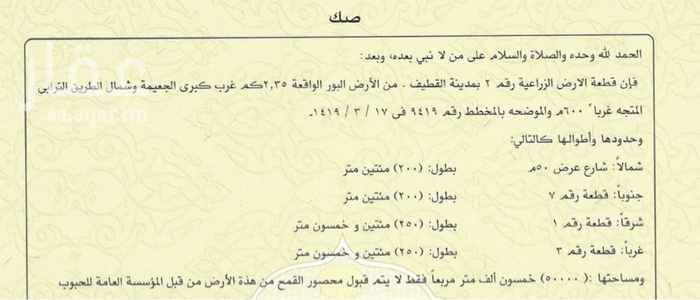 صك
الحمد لله وحده والصلاة والسلام على من لا نبي بعده، وبعد:
فإن قطعة الارض الزراعية رقم ٢ بمدينة القطيف . من الأرض البور الواقعة ٢,٣٥كم غرب كبرى الجعيمة وشمال الطريق الترابى
المتجه غرباً ٦٠٠م والموضحه بالمخطط رقم ٩٤١٩ فى ١٧ / ٣ / ١٤١٩.
وحدودها وأطوالها كالتالي:
شمالاً: شارع عرض ٥٠م بطول: (٢٠٠) مئتين متر
جنوباً: قطعة رقم ٧ بطول: (٢٠٠) مئتين متر
شرقاً: قطعة رقم ١ بطول: (٢٥٠) مئتين و خمسون متر
غرباً: قطعة رقم ٣ بطول: (٢٥٠) مئتين و خمسون متر
ومساحتها :( ٥٠٠٠٠) خمسون ألف متر مربعاً فقط لا يتم قبول محصور القمح من هذة الأرض من قبل المؤسسة العامة للحبوب
عقار
sa.aqar.fm